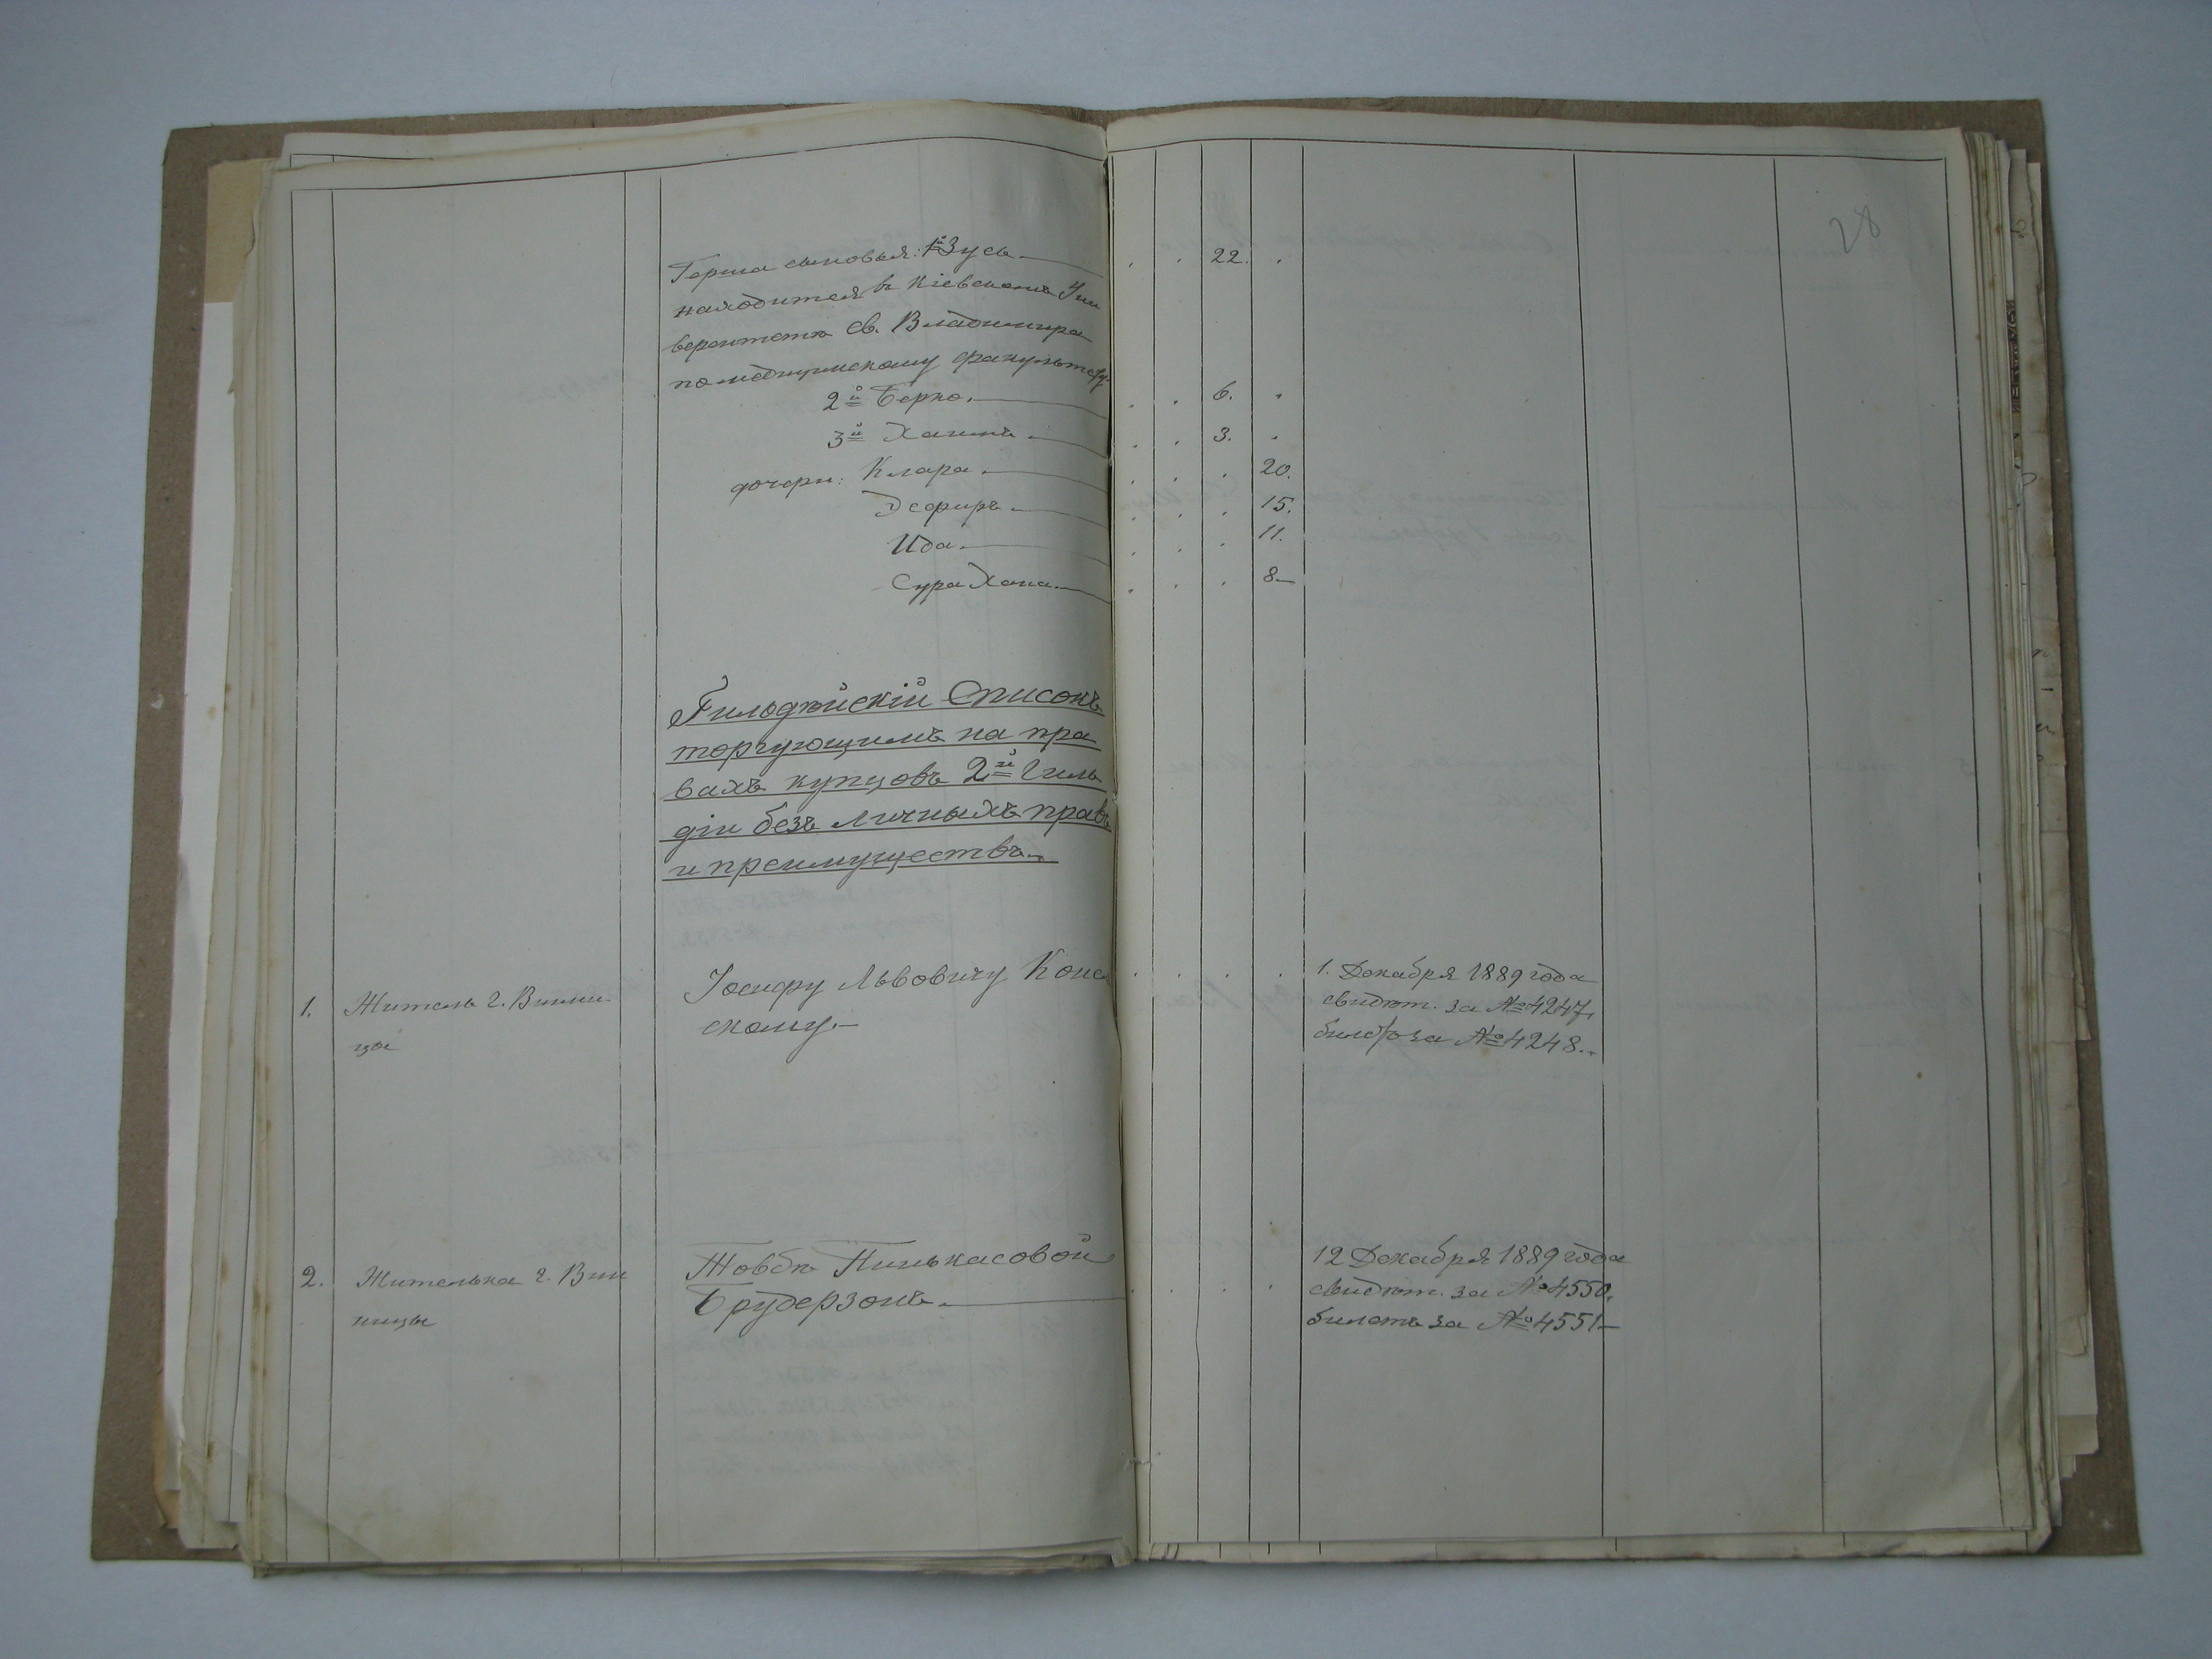 28
Герша сыновья: 1й Зусь 22.
находится в Кіевскомъ Уни
верситетѣ Св. Владимира
по медицинскому факультету.
2й Берко. 6.
3й Хаимъ. 3.
дочери: Клара. 20.
Эсфирь. 15.
Ида. 11.
Сура Хана. 8
Гильдѣйскій Списокъ
торгующимъ на пра
вахъ купцовъ 2й Гиль
діи безъ личныхъ правъ
и преимуществъ.
1. Житель г. Винни Іосифу Львовичу Конс 1. Декабря 1889 года
цы скому. свидѣт. за № 4247,
билетъ за № 4248.
2. Жителька г. Вин Товбѣ Пинькасовой 12 Декабря 1889 года
ницы Брудерзонъ. свидѣт. за № 4550.
билетъ за № 4551